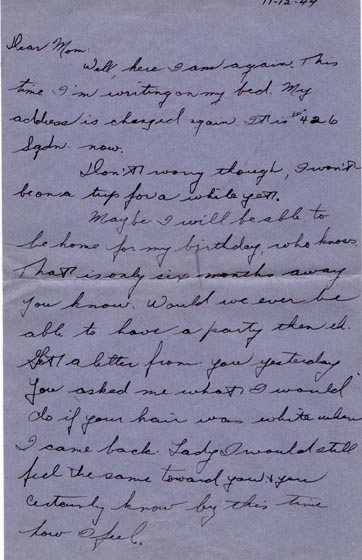 11-12-44
Dear Mom:
Well, here I am again. This
time I'm writing on my bed. My
address is changed again. It is # 426
Sqdn. now.
Don't worry though, I won't
be on a trip for a while yet.
Maybe I will be able to
be home for my birthday, who knows.
That is only six months away
you know. Would we ever be
able to have a party then eh.
Got a letter from you yesterday
You asked me what I would
do if your hair was white when
I came back. Lady I would still
feel the same toward you & you
certainly know by this time
how I feel.